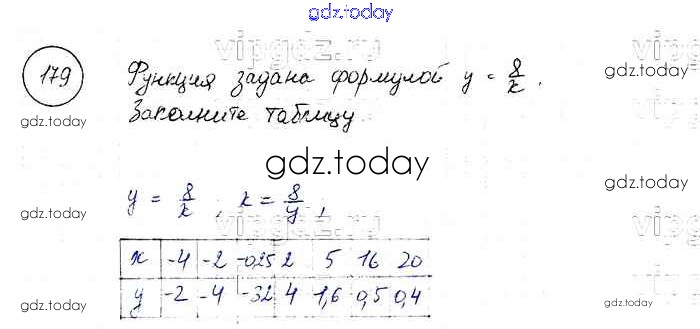 gdz.today
vipgdz.ru
179 Функция задана формулой y = 8/x.
gdz.today
gdz.today Заполните таблицу
gdz.today
y = 8/x ; x = 8/y ;
gdz.today vipgdz.ru
x -4 -2 -0,25 2 5 16 20
y -2 -4 -32 4 1,6 0,5 0,4
gdz.today